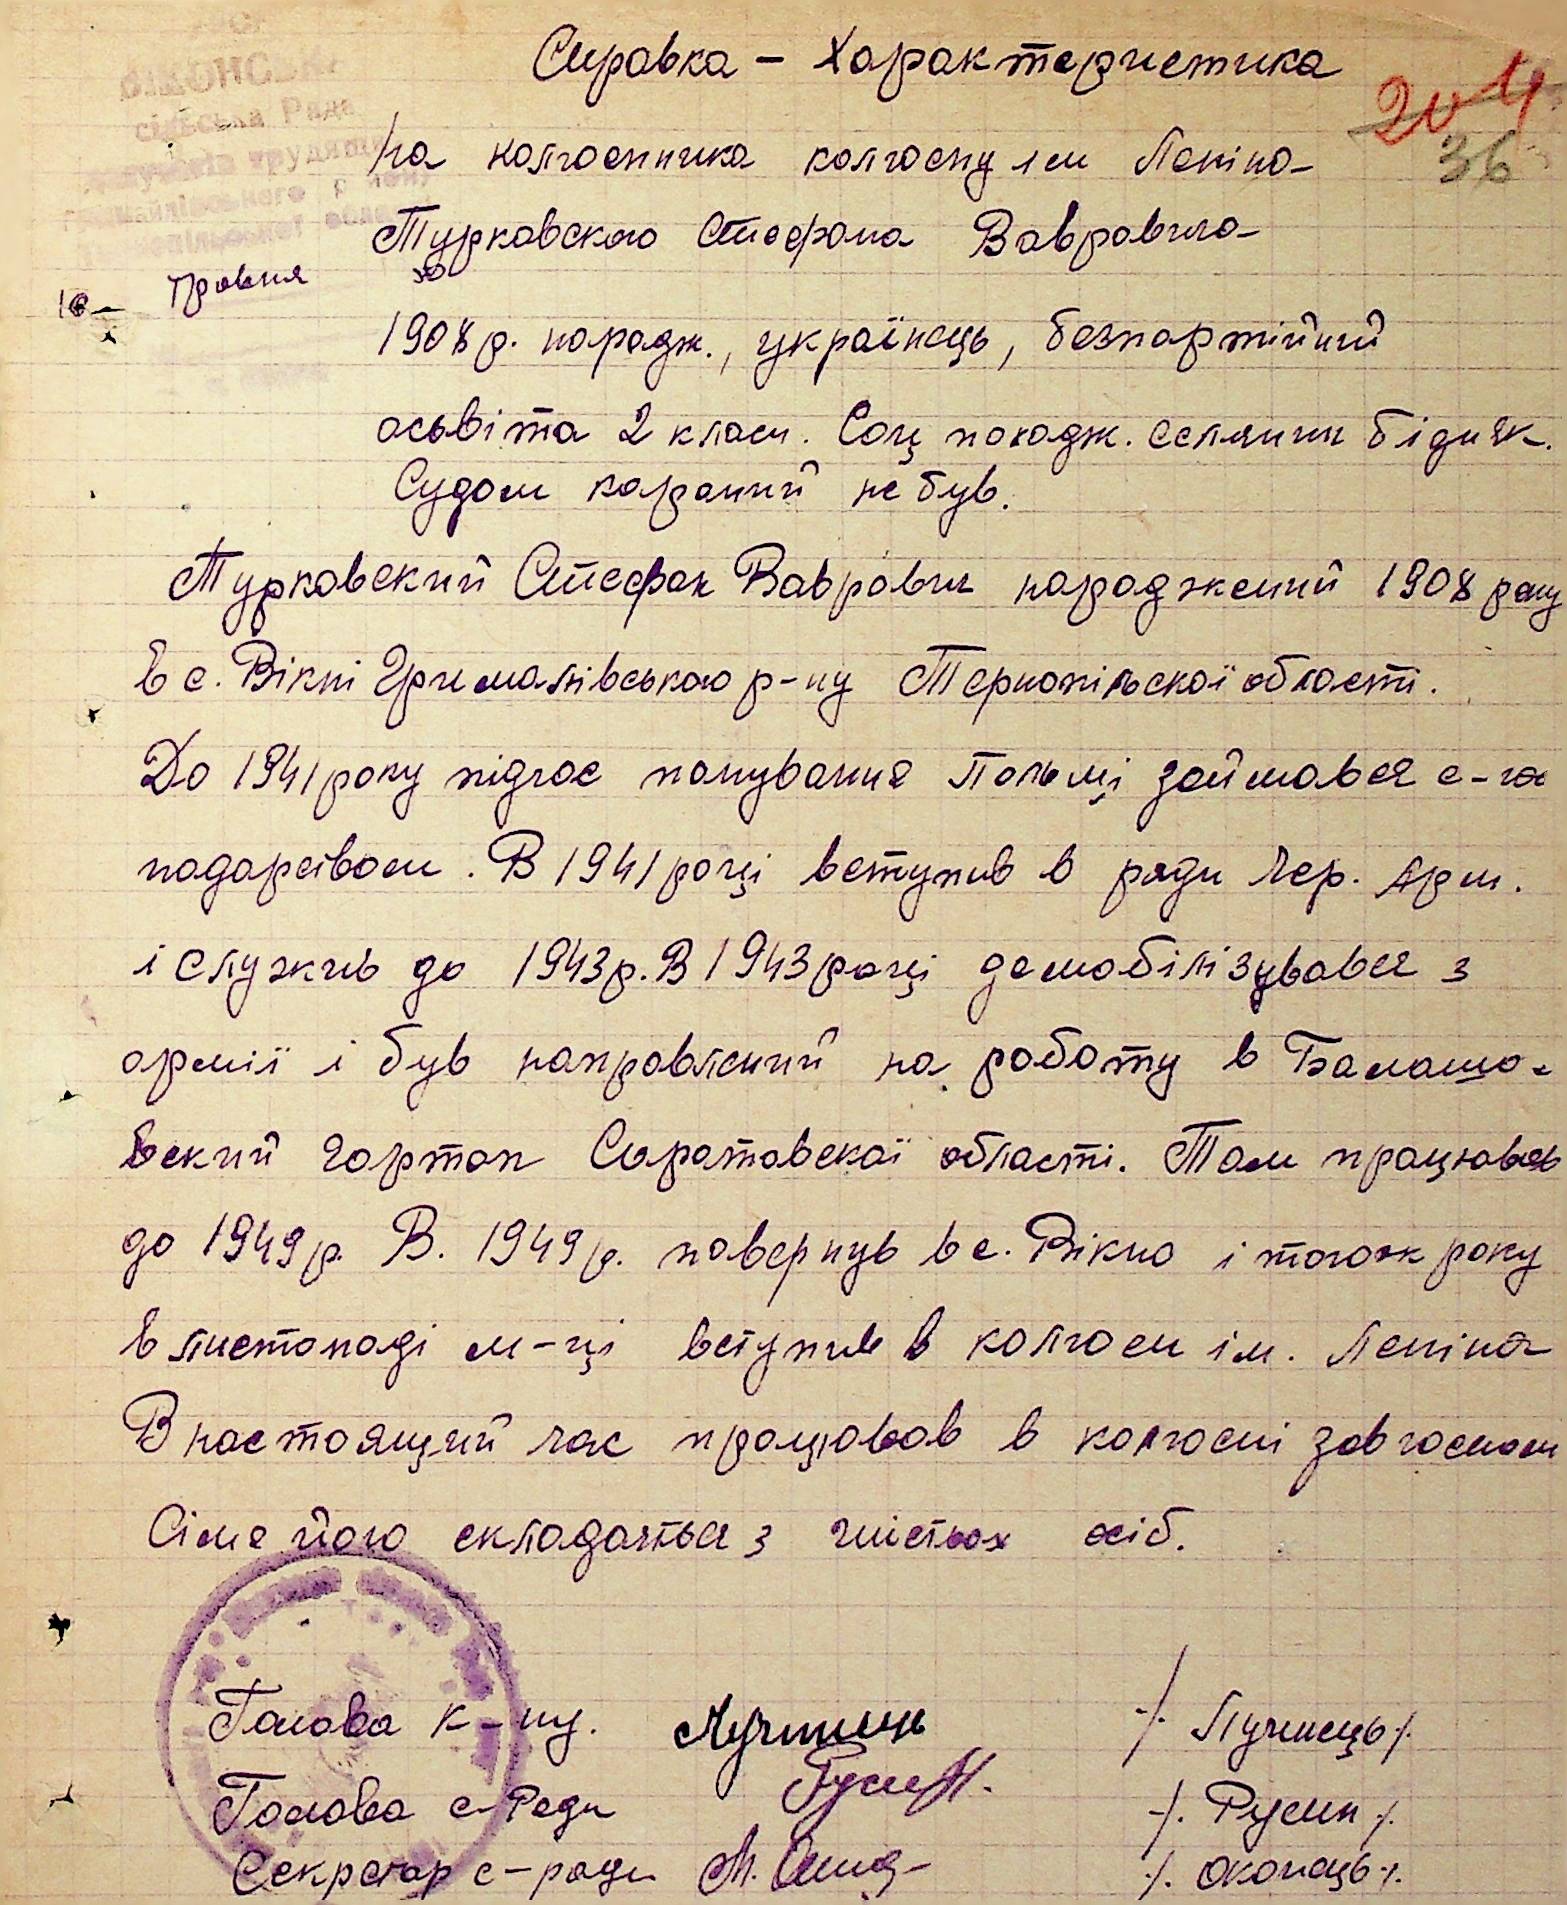 Справка – Характеристика
204
36
сільська Рада
На колгоспника колгоспу ім Леніна
Турковского Стефана Вавровича
16 травня 50
1908 р. народж., українець, безпартійний
осьвіта 2 класи. Соц походж. селянин бідняк.
Судом караний не був.
Турковский Стефан Ваврович народжений 1908 року
в с. Вікні Гримайлівського р-ну Тернопільскої області.
До 1941 року підчас панування Польщі займався с-го
подарсвом. В 1941 році вступив в ряди Чер. Арм.
і служив до 1943 р. В 1943 році демобілізувався з
армії і був направлений на роботу в Балашо-
вский гортоп Саратовскої області. Там працював
до 1949 р. В. 1949 р. повернув в с. Вікно і тогож року
в листопаді м-ці вступив в колгосп ім. Леніна
В настоящий час працював в колгоспі завгоспом
Сімя його складаться з шістьох осіб.
Голова к-пу. Лучинець /. Лучинець /.
Голова с-Ради Русин /. Русин /.
Секретар с-ради /. Оконець /.